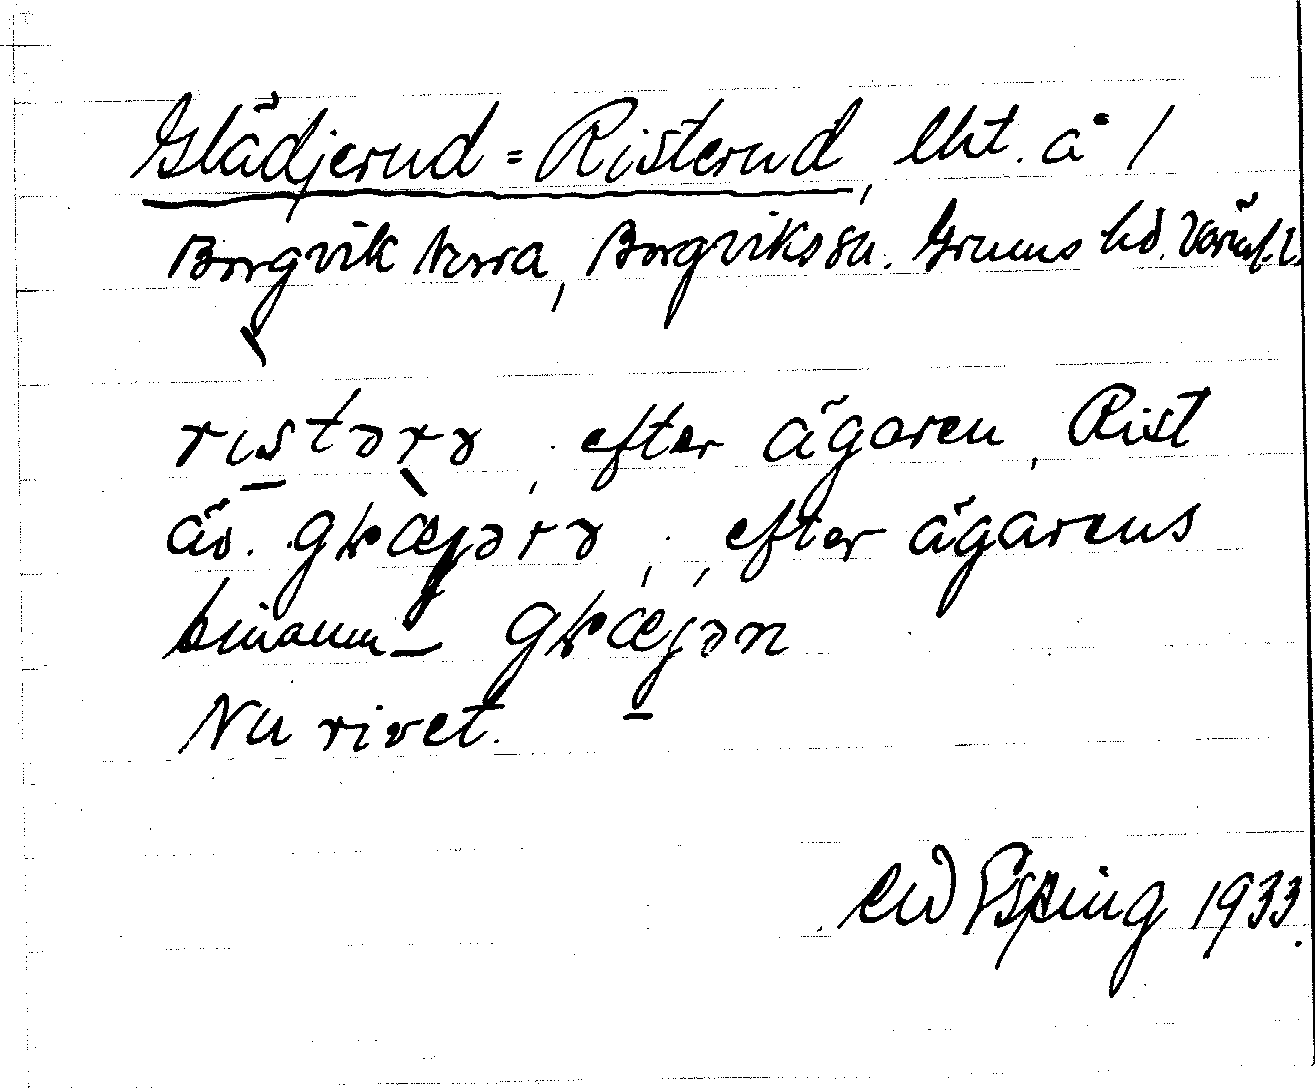 Glädjerud = Risterud, lht. å /
Borgvik Norra, Borgviks sn. Grums hd. Värml. l.
ristərɤ, efter ägaren, Rist
äv. gɽæ̀jərɤ, efter ägarens
binamn – gɽæjən
Nu rivet.
Esping 1933.